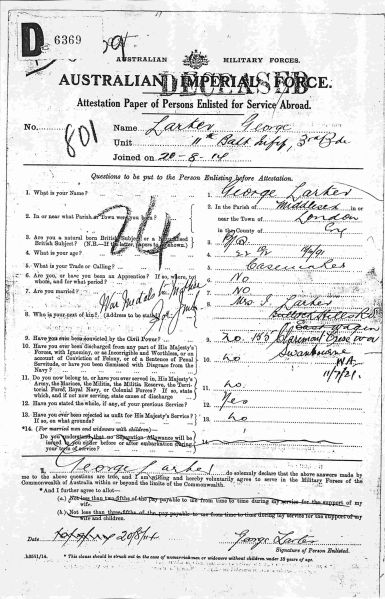 D 6369
AUSTRALIAN MILITARY FORCES.
AUSTRALIAN IMPERIAL FORCE.
DECEASED
Attestation Paper of Persons Enlisted for Service Abroad.
No. 801 Name Larter George
Unit 11th Batt Infy, 3rd Bde
Joined on 20-8-14
Questions to be put to the Person Enlisting before Attestation.
1. What is your Name? 1. George Larter
2. In or near what Parish or Town were you born? 2. In the Parish of Middlesex in or
near the Town of London
in the County of Eng
3. Are you a natural born British Subject or a Naturalised
British Subject? (N.B.—If the latter, papers to be shown)
4. What is your age? 4.
5. What is your Trade or Calling? 5. Casemaker
6. Are you, or have you been an Apprentice? If so, where, to
whom, and for what period? 6. No
7. Are you married? 7. No
8. Who is your next of kin? (Address to be stated) 8. Mrs J. Larter
24
War medals to Mother
East Wagin
9. Have you ever been convicted by the Civil Power? 9. no 155 Claremont Cres
Swanbourne
WA
11/7/21.
10. Have you ever been discharged from any part of His Majesty's
Forces, with Ignominy, or as Incorrigible and Worthless, or on
account of Conviction of Felony, or of a Sentence of Penal
Servitude, or have you been dismissed with Disgrace from the
Navy? 10. no
11. Do you now belong to, or have you ever served in, His Majesty's
Army, the Marines, the Militia, the Militia Reserve, the Territorial
Force, Royal Navy, or Colonial Forces? If so, state
which, and if not now serving, state cause of discharge 11. no
12. Have you stated the whole, if any, of your previous Service? 12. Yes
13. Have you ever been rejected as unfit for His Majesty's Service?
If so, on what grounds? 13. no
*14. (For married men and widowers with children)
Do you understand that no Separation Allowance will be
issued to you either before or after embarkation during your
term of service? 14.
I, George Larter do solemnly declare that the above answers made by
me to the above questions are true, and I am willing and hereby voluntarily agree to serve in the Military Forces of the
Commonwealth of Australia within or beyond the limits of the Commonwealth.
* And I further agree to allot—
(a.) Not less than two-fifths of the pay payable to me from time to time during my service for the support of my
wife.
(b.) Not less than three-fifths of the pay payable to me from time to time during my service for the support of my
wife and children.
20/8/14
George Larter
Signature of Person Enlisted.
* This clause should be struck out in the case of unmarried men or widowers without children under 18 years of age.